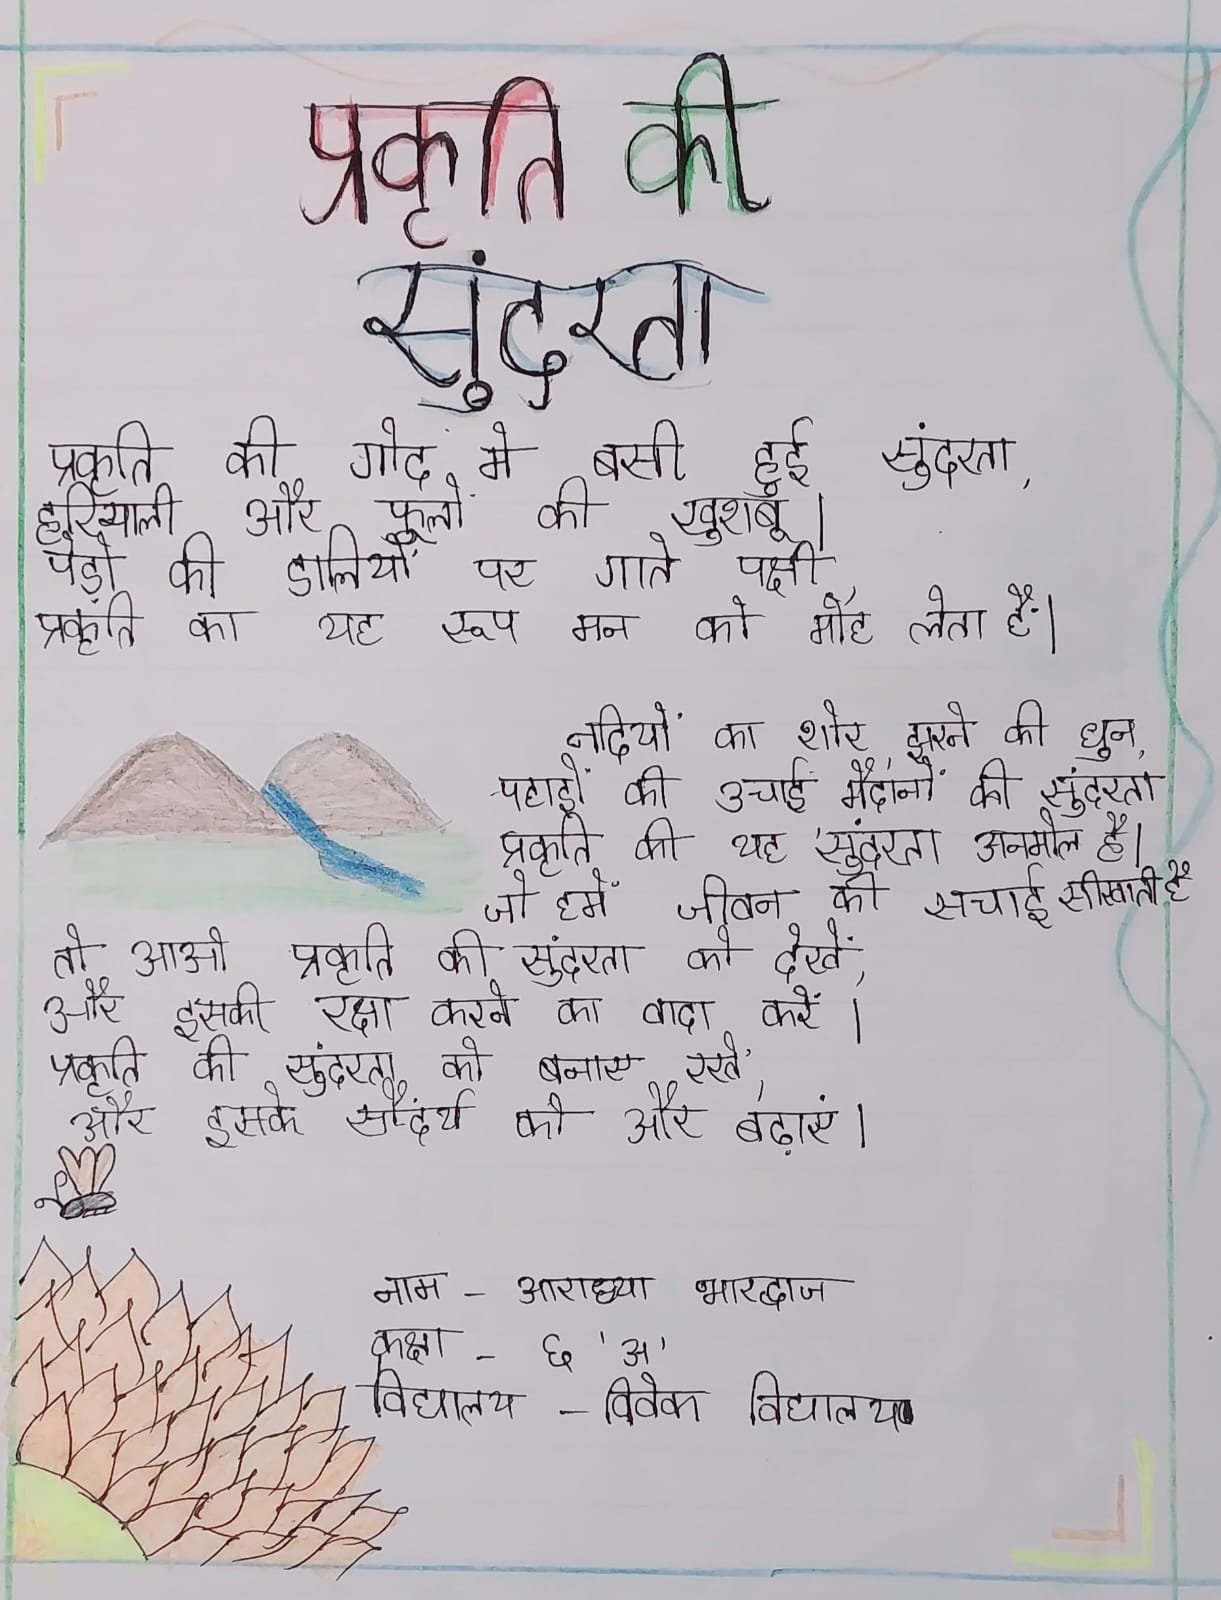 प्रकृति की
सुंदरता
प्रकृति की गोद में बसी हुई सुंदरता,
हरियाली और फूलों की खुशबू।
पेड़ो की डालियों पर गाते पक्षी
प्रकृति का यह रूप मन को मोह लेता हैं।
नदियों का शोर, झरने की धुन,
पहाड़ों की उचाई मैदानों की सुंदरता
प्रकृति की यह सुंदरता अनमोल है।
जो हमें जीवन की सचाई सीखाती है
तो आओ प्रकृति की सुंदरता को देखें,
और इसकी रक्षा करने का वादा करें।
प्रकृति की सुंदरता को बनाए रखें,
और इसके सौंदर्य को और बढ़ाएं।
नाम - आराध्या भारद्वाज
कक्षा - छ 'अ'
विद्यालय - विवेक विद्यालय